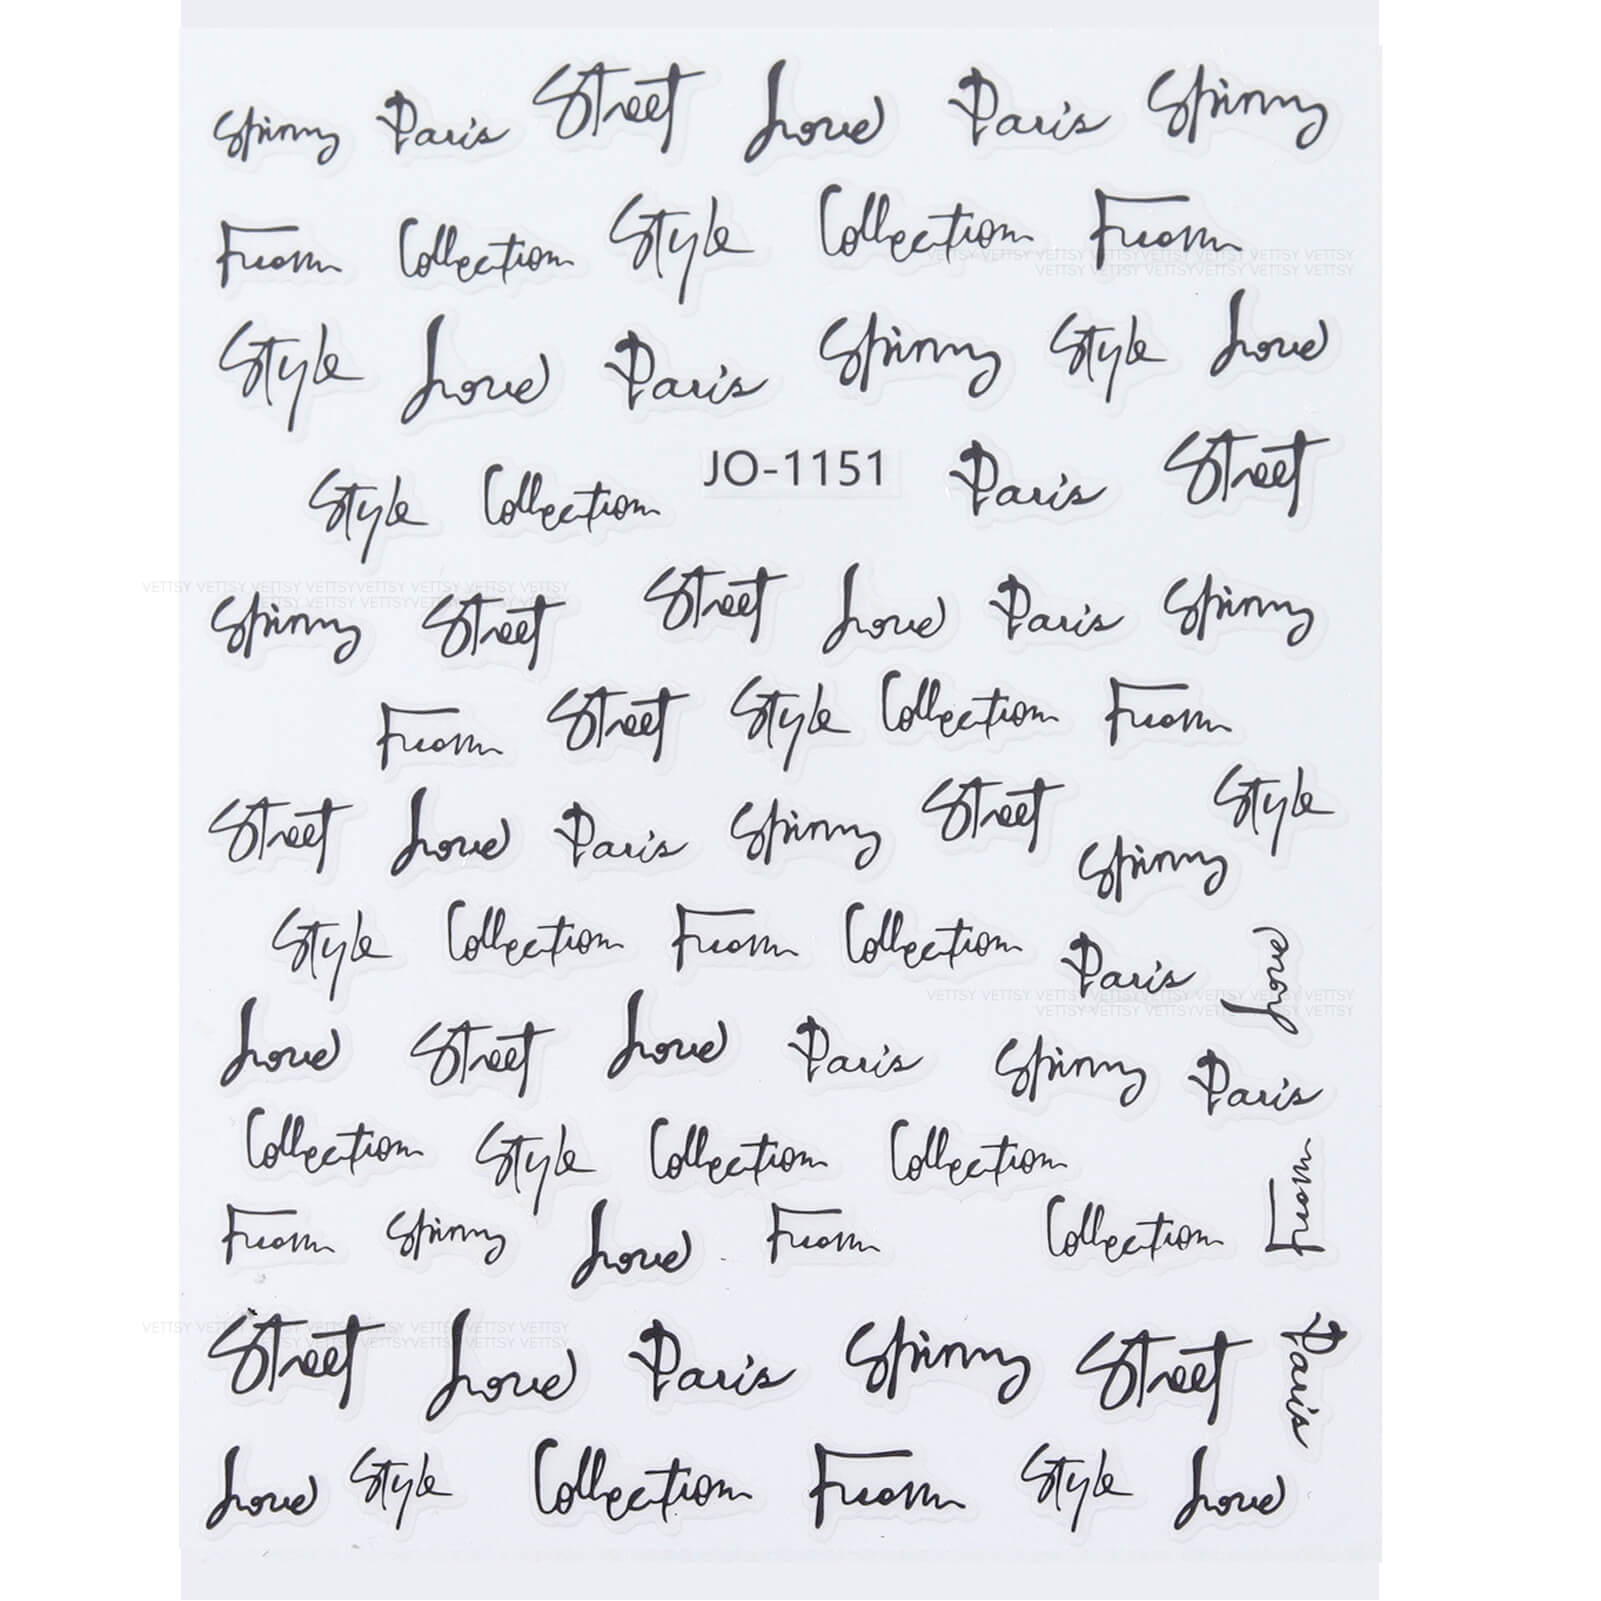 Spinny Paris Street Love Paris Spinny
From Collection Style Collection From
VETTSY VETTSY VETTSY VETTSY VETTSY VETTSY VETTSY VETTSY
VETTSY VETTSY VETTSY VETTSY VETTSY VETTSY
Style Love Paris Spinny Style Love
Style Collection JO-1151 Paris Street
VETTSY VETTSY VETTSY VETTSY VETTSY VETTSY VETTSY VETTSY
VETTSY VETTSY VETTSY VETTSY VETTSY VETTSY
Spinny Street Street Love Paris Spinny
From Street Style Collection From
Street Love Paris Spinny Street Spinny Style
Style Collection From Collection Paris Love
VETTSY VETTSY VETTSY VETTSY VETTSY VETTSY VETTSY VETTSY
VETTSY VETTSY VETTSY VETTSY VETTSY VETTSY
Love Street Love Paris Spinny Paris
Collection Style Collection Collection
From Spinny Love From Collection From
VETTSY VETTSY VETTSY VETTSY VETTSY VETTSY VETTSY VETTSY
VETTSY VETTSY VETTSY VETTSY VETTSY VETTSY
Street Love Paris Spinny Street Paris
Love Style Collection From Style Love